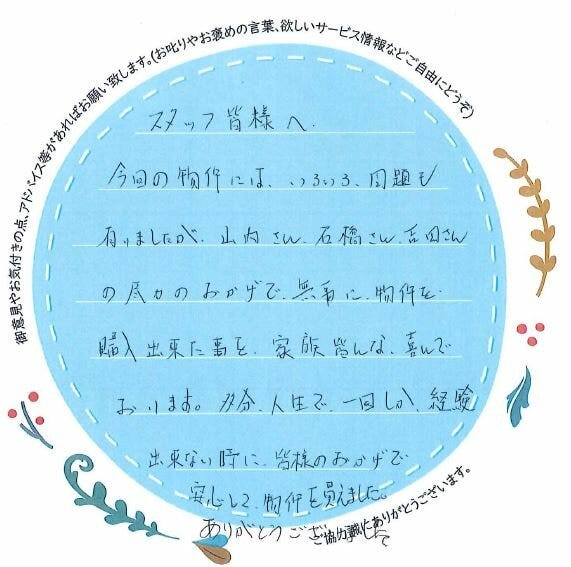 御意見やお気付きの点、アドバイス等があればお願い致します。(お叱りやお褒めの言葉、欲しいサービス情報などご自由にどうぞ)
スタッフ皆様へ.
今回の物件には、いろいろ、問題も
有りましたが、山内さん、石橋さん、吉田さん
の尽力のおかげで、無事に、物件を
購入出来た事を、家族皆んな、喜んで
おります。多分、人生で、一回しか、経験
出来ない時に、皆様のおかげで
安心して、物件を買えました。
ありがとうござ
ご協力誠にありがとうございます。